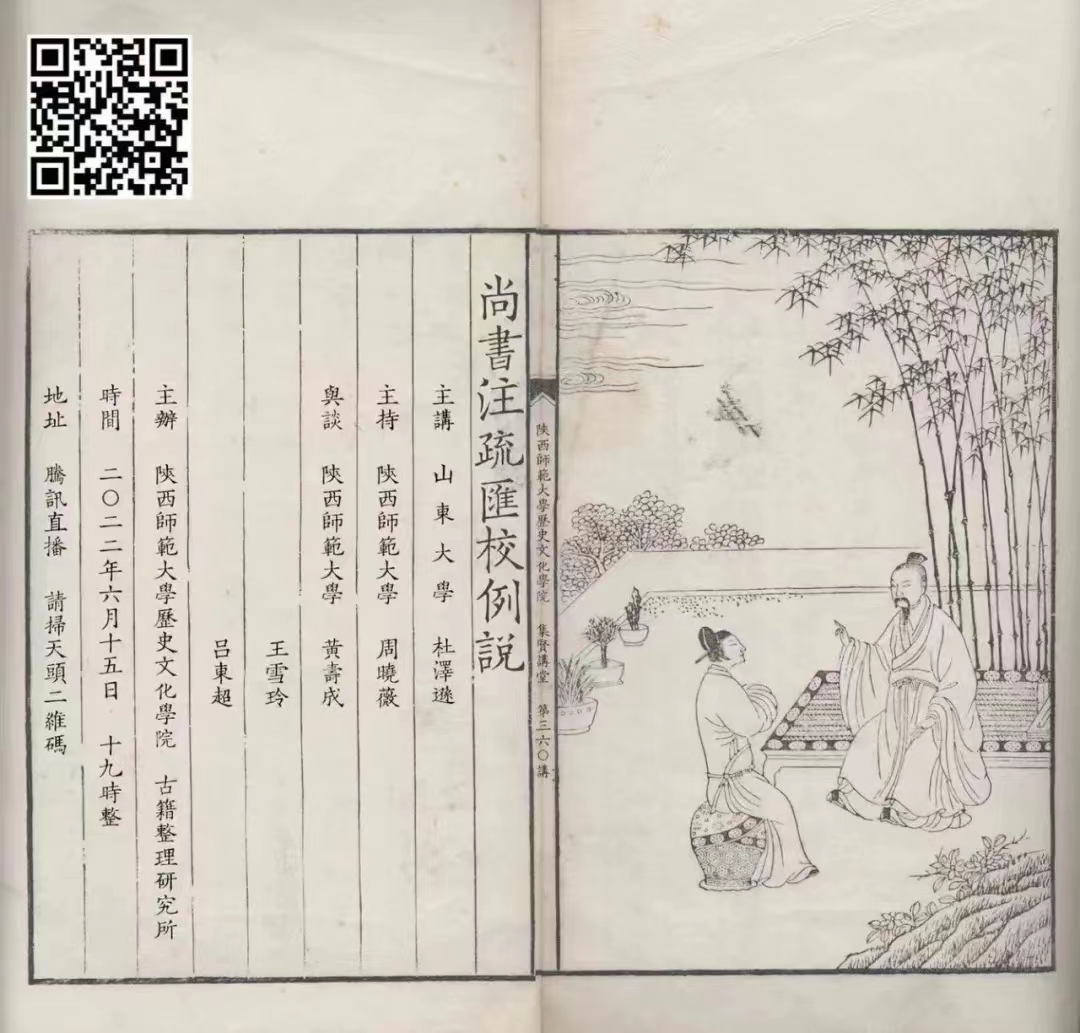 尚書注疏匯校例説
主講 山東大學 杜澤遜
主持 陝西師範大學 周曉薇
與談 陝西師範大學 黃壽成
王雪玲
吕東超
主辦 陝西師範大學歷史文化學院 古籍整理研究所
時間 二〇二二年六月十五日 十九時整
地址 騰訊直播 請掃天頭二維碼
陝西師範大學歷史文化學院 集賢講堂 第三六〇講